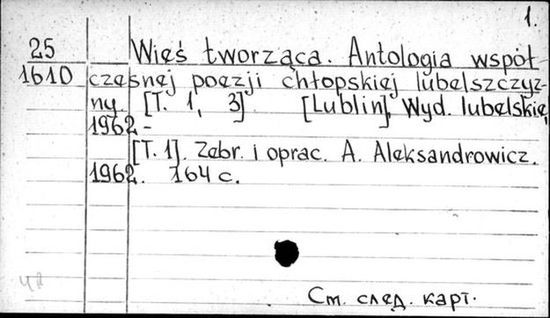 1.
25 Więś tworząca. Antologia współ-
1610 czesnej poezji chłopskiej lubelszczyz-
ny. [T. 1, 3] [Lublin], Wyd. lubelskie,
1962-
[T. 1]. Zebr. i oprac. A. Aleksandrowicz.
1962. 164 с.
См. след. карт.